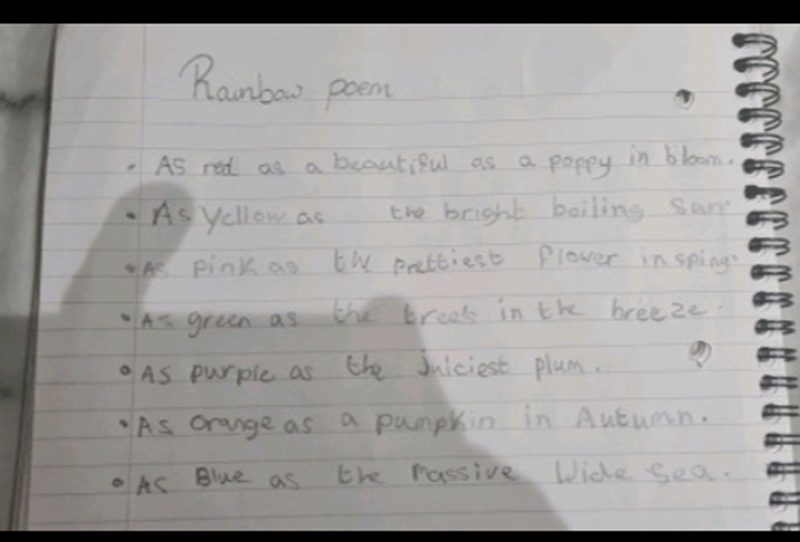 Rainbow poem
• As red as a beautiful as a poppy in bloom.
• As Yellow as the bright boiling Sun.
• As pink as the prettiest flower in sping.
• As green as the trees in the breeze.
• As purple as the juiciest plum.
• As orange as a pumpkin in Autumn.
• As Blue as the massive Wide Sea.